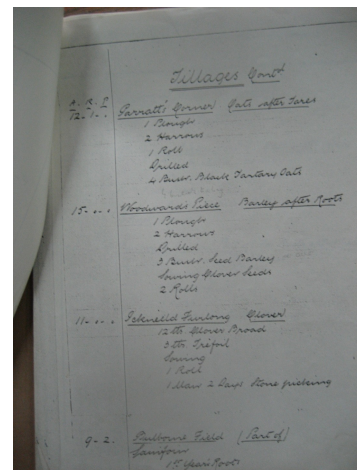 Tillages Contd
A. R. P.
12. 1. . Garratt's Corner Oats after Tares
1 Plough
2 Harrows
1 Roll
Drilled
4 Bush. Black Tartary Oats
15. . . Woodward's Piece Barley after Roots
1 Plough
2 Harrows
Drilled
3 Bush. Seed Barley
Sowing Clover Seeds
2 Rolls
11. . . Icknield Furlong Clover
12 lbs Clover Broad
3 lbs Trefoil
Sowing
1 Roll
1 Man 2 Days Stone picking
9 - 2. Field (Part of)
Sainfoin
1st Year Roots